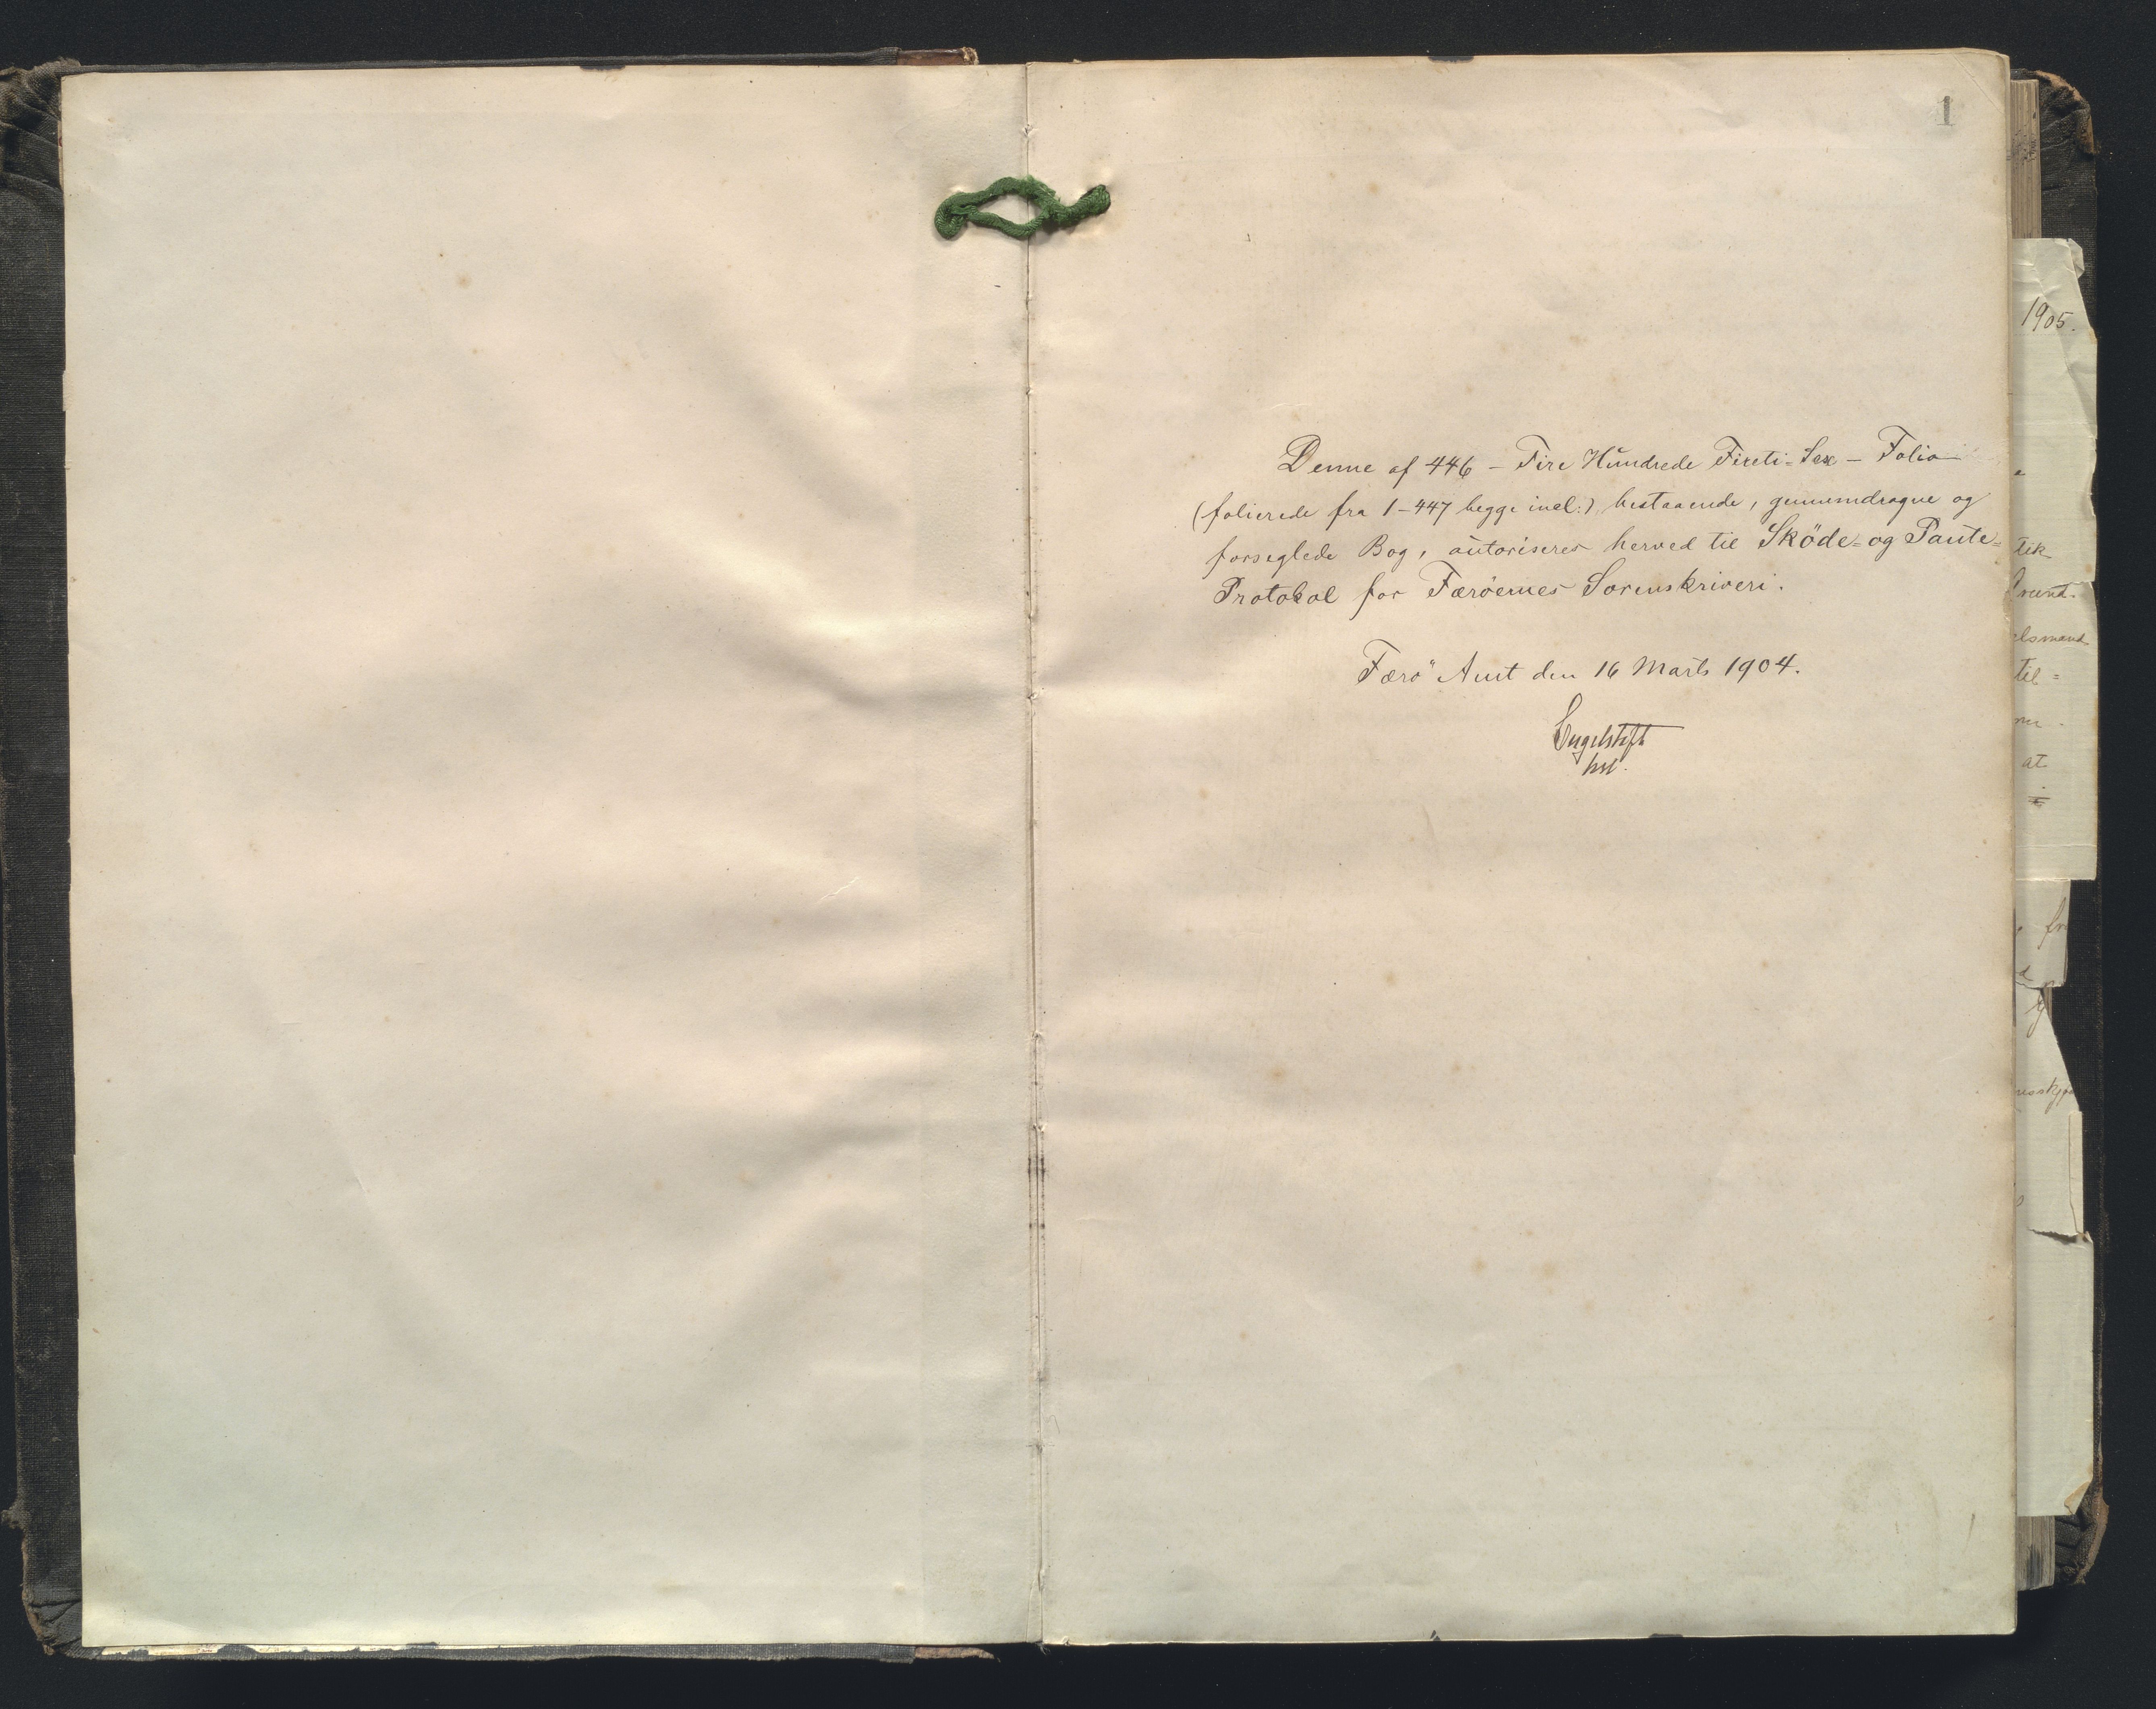 1
Denne af 446 - Fire Hundrede Fireti-Sex - Folio
(folierede fra 1-447 begge incl:) bestaaende, gennemdragne og
forseglede Bog, autoriseres herved til Sköde= og Pante=
Protokol for Færöernes Sorenskriveri.
Færö Amt den 16 Marts 1904.
Engelstoft
1905.
tik
elsmand
til =
at
fr